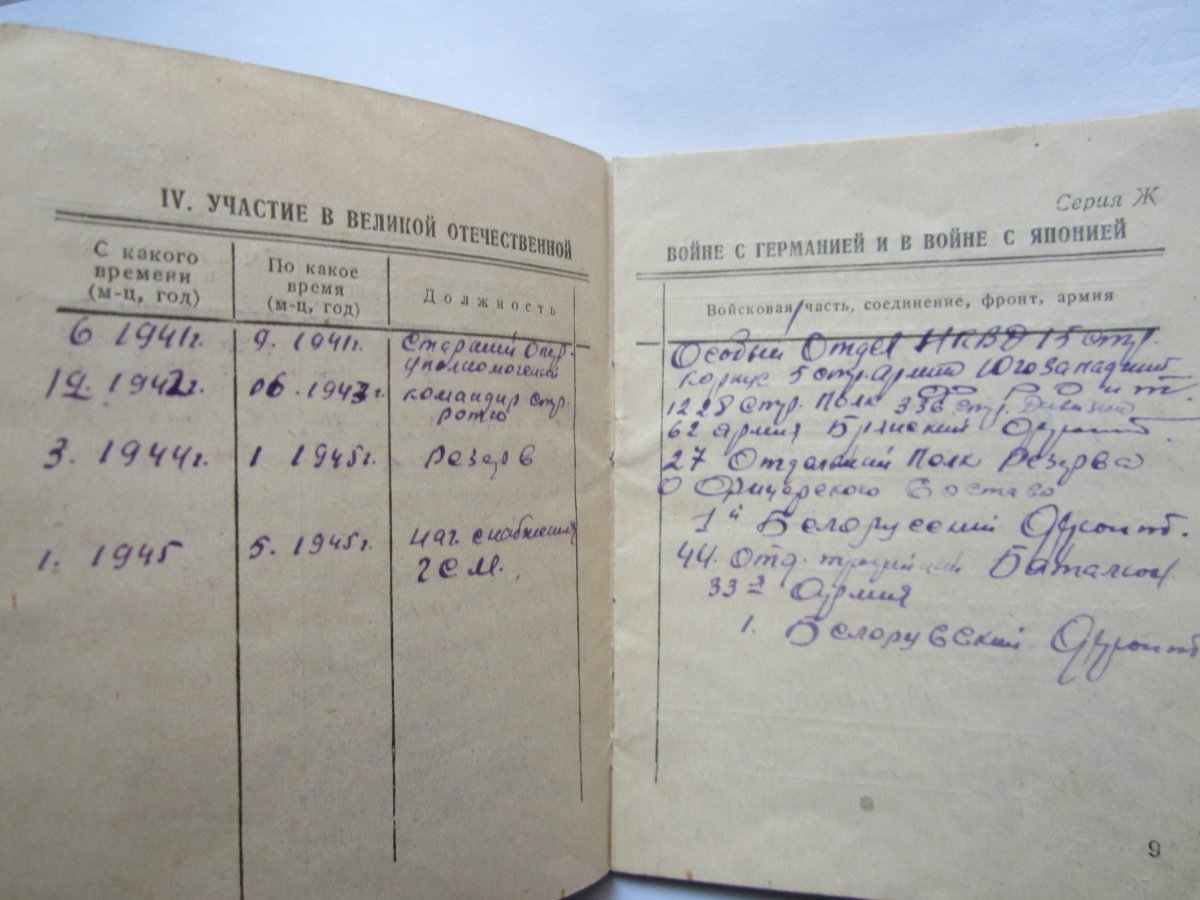 IV. УЧАСТИЕ В ВЕЛИКОЙ ОТЕЧЕСТВЕННОЙ
С какого
времени
(м-ц, год)
По какое
время
(м-ц, год)
Должность
6 1941г. 9. 1941г. Старший Опер.
Уполномоченный
12. 1942г. 06. 1943г. командир стр.
ротю
3. 1944г. 1 1945г. Резерв
1. 1945 5. 1945г. Нач. снабжения
ГСМ.
Серия Ж
ВОЙНЕ С ГЕРМАНИЕЙ И В ВОЙНЕ С ЯПОНИЕЙ
Войсковая часть, соединение, фронт, армия
Особый Отдел НКВД 15 стр.
корпус 5 стр. армии Югозападний
Фронт.
1228 стр. Полк 336 стр. Дивизии
62 армия Брянский Фронт.
27 Отдельний Полк Резерва
Офицерского Состава
1й Белоруский Фронт.
44. Отд. Батальон
33я Армия
1. Белоруский Фронт
9